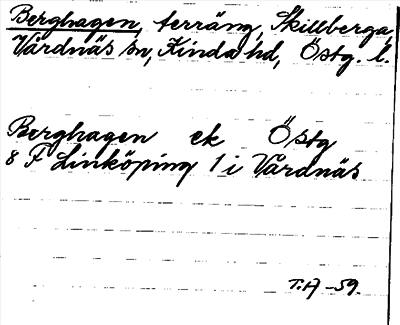 Berghagen, terräng, Skillberga,
Vårdnäs sn, Kinda hd, Östg. l.
Berghagen ek Östg
8 F Linköping 1 i Vårdnäs
T.A -59.